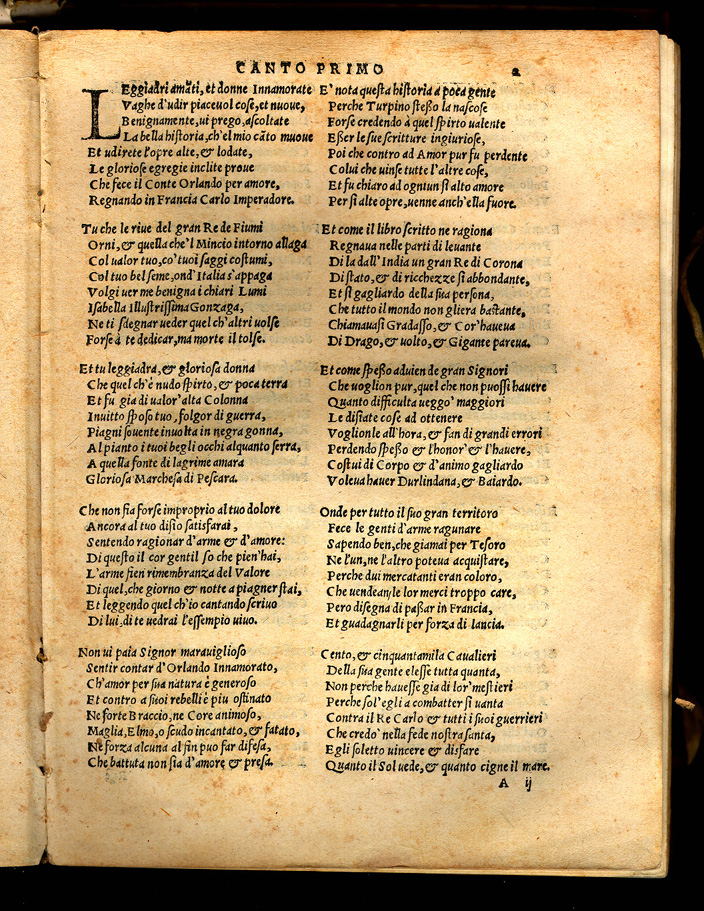 CANTO PRIMO 2
LEggiadri amāti, et donne Innamorate
Vaghe d'udir piaceuol cose, et nuoue,
Benignamente, ui prego, ascoltate
La bella historia, ch'el mio cāto muoue
Et udirete l'opre alte, & lodate,
Le gloriose egregie inclite proue
Che fece il Conte Orlando per amore,
Regnando in Francia Carlo Imperadore.
Tu che le riue del gran Re de Fiumi
Orni, & quella che'l Mincio intorno allaga
Col ualor tuo, co' tuoi saggi costumi,
Col tuo bel seme, ond'Italia s'appaga
Volgi uer me benigna i chiari Lumi
Isabella Illustrissima Gonzaga,
Ne ti sdegnar ueder quel ch'altri uolse
Forse à te dedicar, ma morte il tolse.
Et tu leggiadra, & gloriosa donna
Che quel ch'è nudo spirto, & poca terra
Et fu gia di ualor'alta Colonna
Inuitto sposo tuo, folgor di guerra,
Piagni souente inuolta in negra gonna,
Al pianto i tuoi begli occhi alquanto serra,
A quella fonte di lagrime amara
Gloriosa Marchesa di Pescara.
Che non fia forse improprio al tuo dolore
Ancora al tuo disio satisfarai,
Sentendo ragionar d'arme & d'amore:
Di questo il cor gentil so che pien'hai,
L'arme fien rimembranza del Valore
Di quel, che giorno & notte a piagner stai,
Et leggendo quel ch'io cantando scriuo
Di lui, di te uedrai l'essempio uiuo.
Non ui paia Signor marauiglioso
Sentir contar d'Orlando Innamorato,
Ch'amor per sua natura è generoso
Et contro a suoi rebelli è piu ostinato
Ne forte Braccio, ne Core animoso,
Maglia, Elmo, o scudo incantato, & fatato,
Ne forza alcuna al fin puo far difesa,
Che battuta non sia d'amore & presa.
E' nota questa historia a poca gente
Perche Turpino stesso la nascose
Forse credendo à quel spirto ualente
Esser le sue scritture ingiuriose,
Poi che contro ad Amor pur fu perdente
Colui che uinse tutte l'altre cose,
Et fu chiaro ad ogniun sì alto amore
Per sì alte opre, uenne anch'ella fuore.
Et come il libro scritto ne ragiona
Regnaua nelle parti di leuante
Di la dall'India un gran Re di Corona
Di stato, & di ricchezze sì abbondante,
Et sì gagliardo della sua persona,
Che tutto il mondo non gliera bastante,
Chiamauasi Gradasso, & Cor'haueua
Di Drago, & uolto, & Gigante pareua.
Et come spesso aduien de gran Signori
Che uoglion pur, quel che non puossi hauere
Quanto difficulta ueggo' maggiori
Le disiate cose ad ottenere
Voglionle all'hora, & fan di grandi errori
Perdendo spesso & l'honor' & l'hauere,
Costui di Corpo & d'animo gagliardo
Voleua hauer Durlindana, & Baiardo.
Onde per tutto il suo gran territoro
Fece le genti d'arme ragunare
Sapendo ben, che giamai per Tesoro
Ne l'un, ne l'altro poteua acquistare,
Perche dui mercatanti eran coloro,
Che uendean le lor merci troppo care,
Pero disegna di passar in Francia,
Et guadagnarli per forza di lancia.
Cento, & cinquantamila Caualieri
Della sua gente elesse tutta quanta,
Non perche hauesse gia di lor'mestieri
Perche sol'egli a combatter si uanta
Contra il Re Carlo & tutti i suoi guerrieri
Che credo' nella fede nostra santa,
Egli soletto uincere & disfare
Quanto il Sol uede, & quanto cigne il mare.
A ij